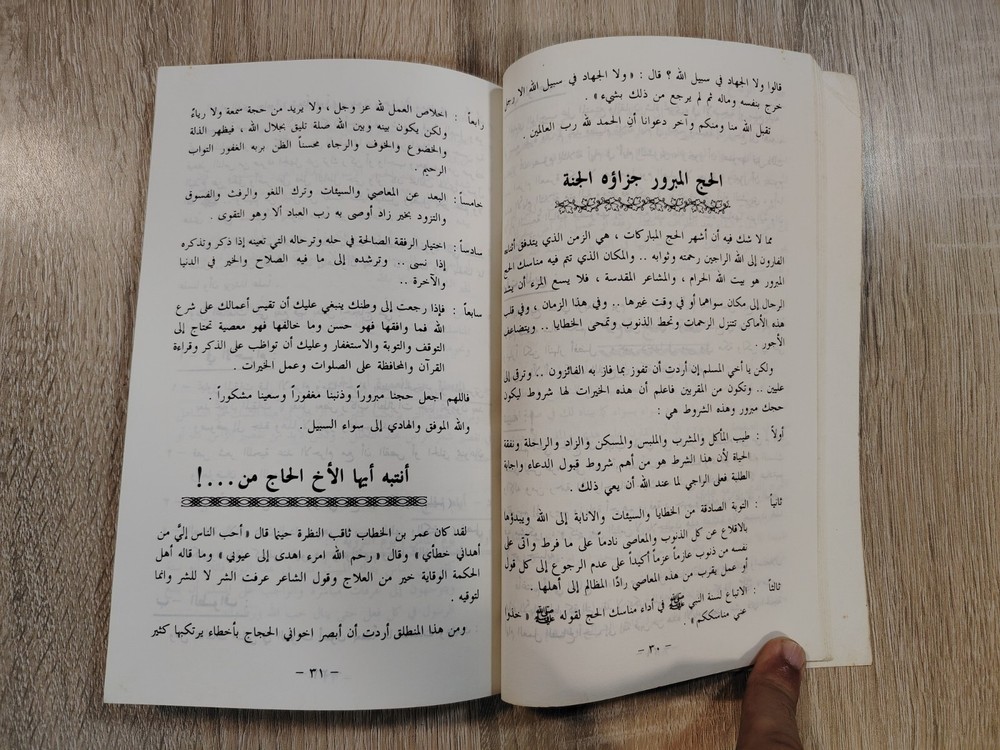 قالوا ولا الجهاد في سبيل الله ؟ قال : « ولا الجهاد في سبيل الله الا رجل
خرج بنفسه وماله ثم لم يرجع من ذلك بشيء » .
تقبل الله منا ومنكم وآخر دعوانا أن الحمد لله رب العالمين .
الحج المبرور جزاؤه الجنة
مما لا شك فيه أن أشهر الحج المباركات ، هي الزمن الذي يتدفق أثناءه
الفارون إلى الله الراجين رحمته وثوابه .. والمكان الذي تتم فيه مناسك الحج
المبرور هو بيت الله الحرام ، والمشاعر المقدسة ، فلا يسع المرء أن يشد
الرحال إلى مكان سواهما أو في وقت غيرها .. وفي هذا الزمان ، وفي قلب
هذه الأماكن تتنزل الرحمات وتحط الذنوب وتمحى الخطايا .. ويتضاعف
الأجور .
ولكن يا أخي المسلم إن أردت أن تفوز بما فاز به الفائزون .. وترقى إلى
عليين .. وتكون من المقربين فاعلم أن هذه الخيرات لها شروط ليكون
حجك مبرور وهذه الشروط هي :
أولاً : طيب المأكل والمشرب والملبس والمسكن والزاد والراحلة ونفقة
الحياة لأن هذا الشرط هو من أهم شروط قبول الدعاء واجابة
الطلبة فعلى الراجي لما عند الله أن يعي ذلك .
ثانياً : التوبة الصادقة من الخطايا والسيئات والانابة إلى الله ويبدؤها
بالاقلاع عن كل الذنوب والمعاصي نادماً على ما فرط وآتى على
نفسه من ذنوب عازماً عزماً أكيداً على عدم الرجوع إلى كل قول
أو عمل يقرب من هذه المعاصي رادًا المظالم إلى أهلها .
ثالثاً : الاتباع لسنة النبي ﷺ في أداء مناسك الحج لقوله ﷺ « خذوا
عني مناسككم » .
– ٣٠ –
رابعاً : اخلاص العمل لله عز وجل ، ولا يريد من حجة سمعة ولا رياءً
ولكن يكون بينه وبين الله صلة تليق بجلال الله ، فيظهر الذلة
والخضوع والخوف والرجاء محسناً الظن بربه الغفور التواب
الرحيم .
خامساً : البعد عن المعاصي والسيئات وترك اللغو والرفث والفسوق
والتزود بخير زاد أوصى به رب العباد ألا وهو التقوى .
سادساً : اختيار الرفقة الصالحة في حله وترحاله التي تعينه إذا ذكر وتذكره
إذا نسى .. وترشده إلى ما فيه الصلاح والخير في الدنيا
والآخرة ..
سابعاً : فإذا رجعت إلى وطنك ينبغي عليك أن تقيس أعمالك على شرع
الله فما وافقها فهو حسن وما خالفها فهو معصية تحتاج إلى
التوقف والتوبة والاستغفار وعليك أن تواظب على الذكر وقراءة
القرآن والمحافظة على الصلوات وعمل الخيرات .
فاللهم اجعل حجنا مبروراً وذنبنا مغفوراً وسعينا مشكوراً .
والله الموفق والهادي إلى سواء السبيل .
أنتبه أيها الأخ الحاج من...!
لقد كان عمر بن الخطاب ثاقب النظرة حينما قال « أحب الناس إليَّ من
أهداني خطأي » وقال « رحم الله امرء اهدى إلى عيوبي » وما قاله أهل
الحكمة الوقاية خير من العلاج وقول الشاعر عرفت الشر لا للشر وانما
لتوقيه .
ومن هذا المنطلق أردت أن أبصر اخواني الحجاج بأخطاء يرتكبها كثير
– ٣١ –